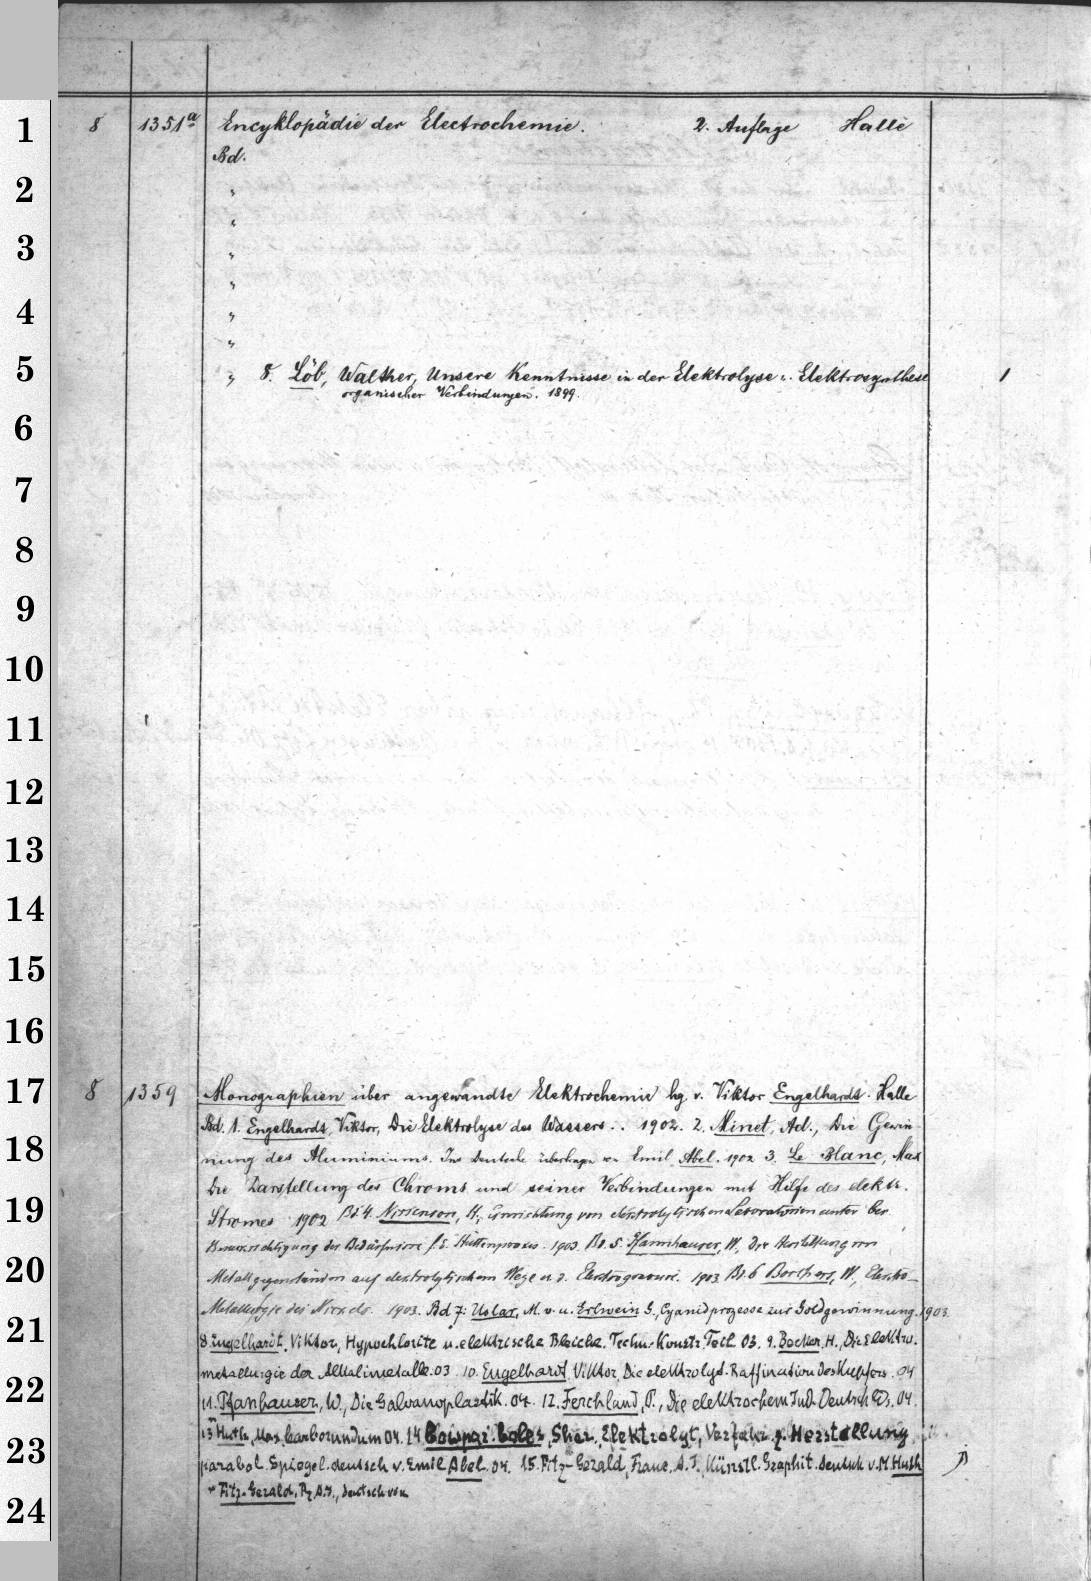 1 8 1351a Encyklopädie der Electrochemie. 2. Auflage Halle
Bd.
2 „
„
3 „
„
4 „
„
5 „ 8. Löb, Walther, Unsere Kenntnisse in der Elektrolyse u. Elektrosynthese 1
organischer Verbindungen. 1899.
6
7
8
9
10
11
12
13
14
15
16
17 8 1359 Monographien über angewandte Elektrochemie hg. v. Viktor Engelhardt. Halle
Bd. 1. Engelhardt, Viktor, Die Elektrolyse des Wassers. . 1902. 2. Minet, Ad., Die Gewin-
18 nung des Aluminiums. Ins Deutsche übertragen von Emil Abel. 1902 3. Le Blanc, Max
Die Darstellung des Chroms und seiner Verbindungen mit Hilfe des elektr.
19 Stromes 1902 Bd. 4. Nissenson, H., Einrichtung von elektrolytischen Laboratorien unter bes.
Berücksichtigung der Bedürfnisse f. d. Hüttenpraxis. 1903. Bd. 5. Pfannhauser, W., Die Herstellung von
20 Metallgegenständen auf elektrolytischem Wege u. d. Elektrogravure. 1903 Bd. 6 Borchers, W., Elektro-
Metallurgie des Nickels. 1903. Bd 7: Uslar, M. v. u. Erlwein G., Cyanidprozesse zur Goldgewinnung. 1903.
21 8. Engelhardt, Viktor, Hypochlorite u. elektrische Bleiche. Techn.-Konstr. Teil. 03. 9. Becker, H., Die Elektro-
metallurgie der Alkalimetalle. 03 10. Engelhardt, Viktor, Die elektrolyt. Raffination des Kupfers. 04
22 11. Pfanhauser, W., Die Galvanoplastik. 04. 12. Ferchland, P., Die elektrochem Ind. Deutschlds. 04.
13 Huth, Max Carborundum 04. 14 Cowper-Coles, Sher., Elektrolyt. Verfahr. z. Herstellung
23 parabol. Spiegel. deutsch v. Emil Abel. 04. 15. Fitz-Gerald, Franc. A. J., Künstl. Graphit. deutsch v. M. Huth
24 Fitz-Gerald, A. J., deutsch von